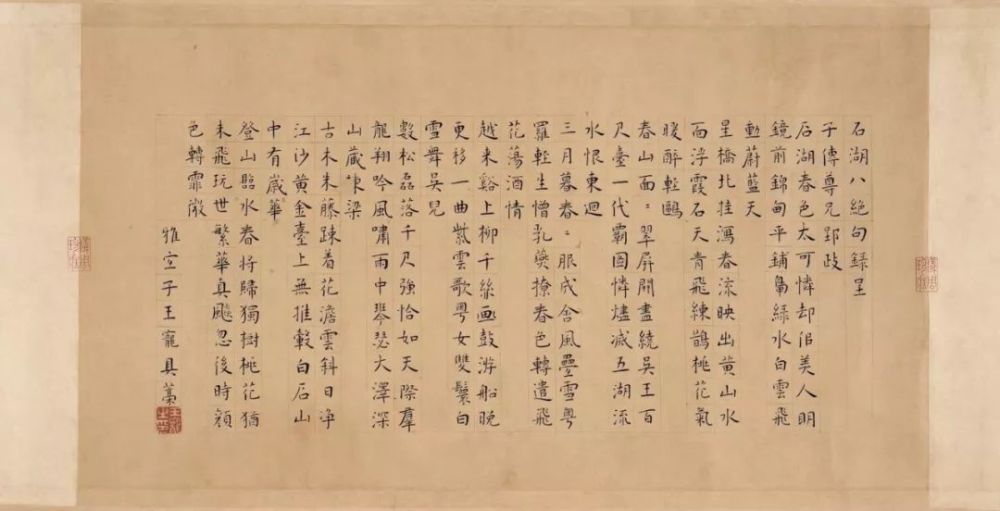 石湖八絕句録呈
子傳尊兄郢政
石湖春色太可憐却佀美人明
鏡前錦甸平鋪鳧綠水白雲飛
動蔚藍天
星橋北挂瀉春流映出黄山水
面浮霞石天青飛練鵲桃花氣
暖醉輕鷗
春山面〻翠屏開畫繞吳王百
尺臺一代霸圖憐燼滅五湖流
水恨東迴
三月暮春〻服成含風疊雪粤
羅輕生憎乳燕撩春色轉遣飛
花蕩酒情
越来谿上柳千絲畫鼓游船晚
更移一曲紫雲歌粤女雙鬟白
雪舞吳兒
數松磊落千尺強恰如天際羣
龍翔吟風嘯雨中琴瑟大澤深
山蔵棟梁
古木朱藤踈着花澹雲斜日净
江沙黄金臺上無推轂白石山
中有歳華
登山臨水春将歸獨樹桃花猶
未飛玩世繁華真飈忽後時顔
色轉霏微
雅宜子王寵具藁